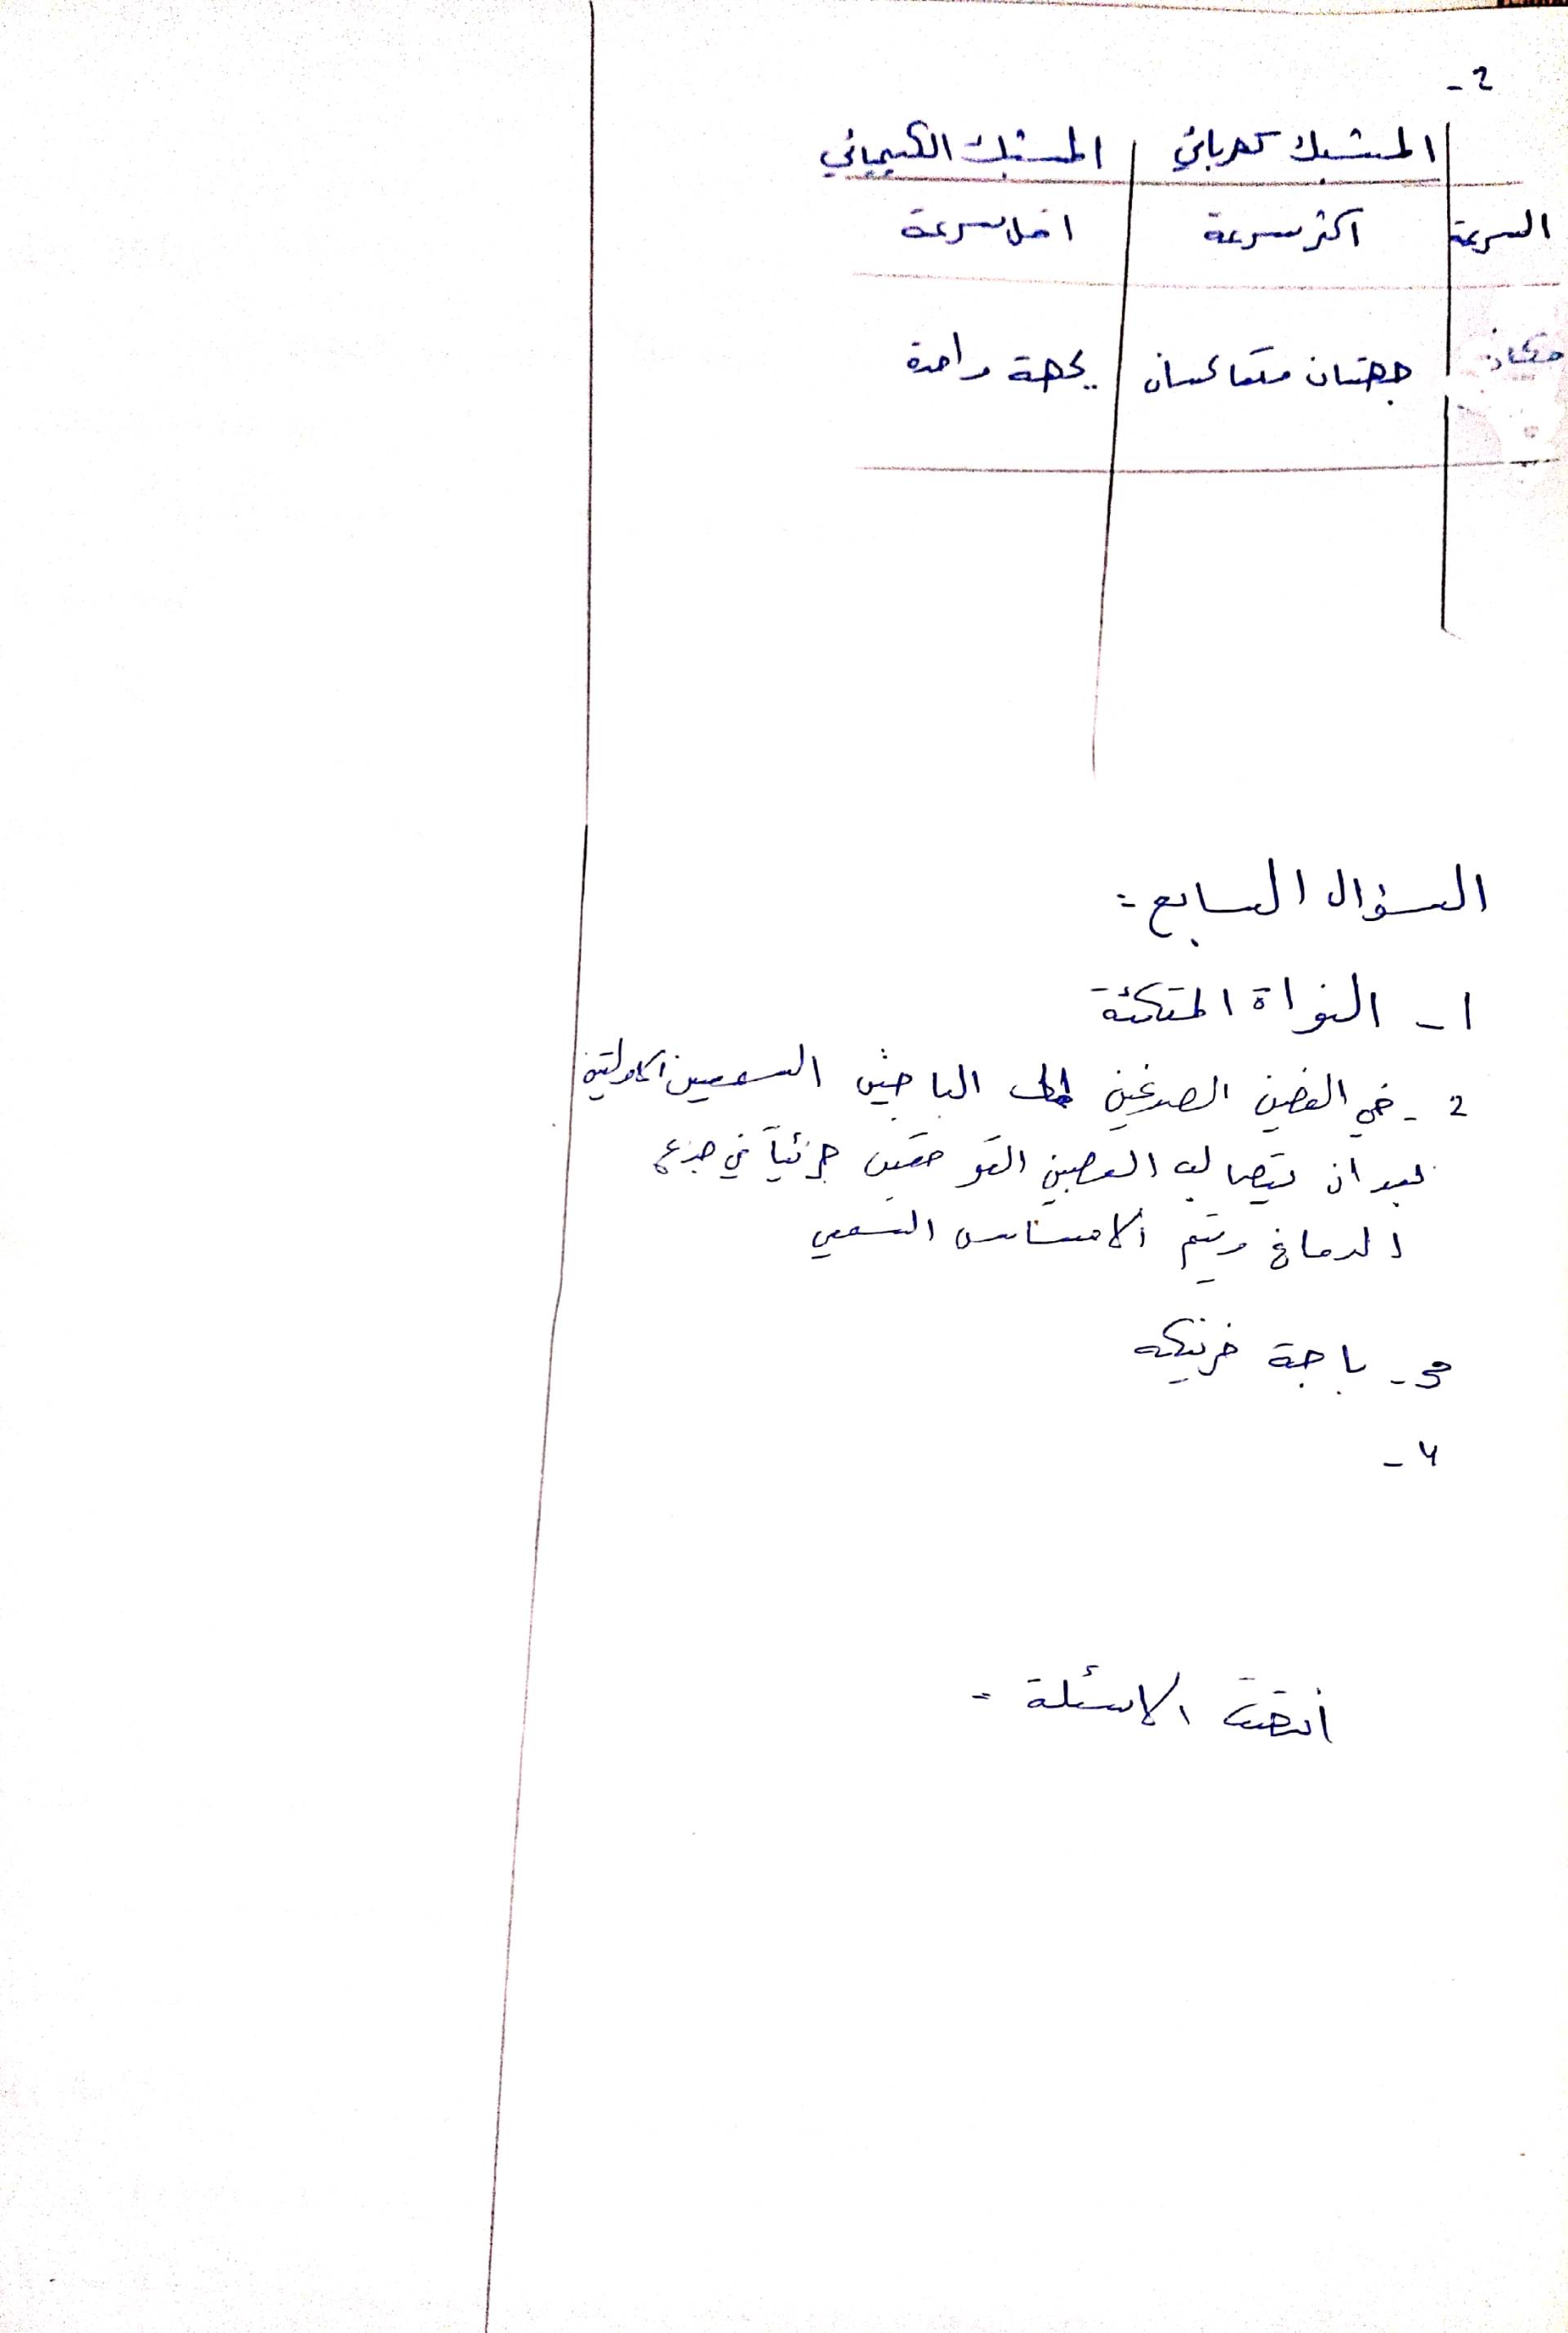 2-
المشبك كهربائي المشبك الكيميائي
السرعة اكثر سرعة اقل سرعة
جهتان متعاكستان بجهة واحدة
السؤال السابع:
1- النواة المتكئة
2- في الفصين الصدغيين الباحتين السمعيتين الاوليتين
بعد ان يتصالب العصبين القوقعيين جزئياً في جذع
الدماغ ويتم الاحساس السمعي
3- باحة فرنيكه
4-
انتهت الاسئلة -